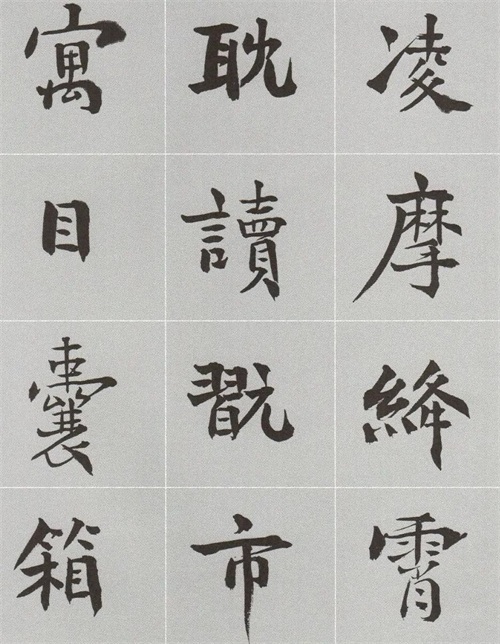 凌摩絳霄
耽讀翫市
寓目囊箱